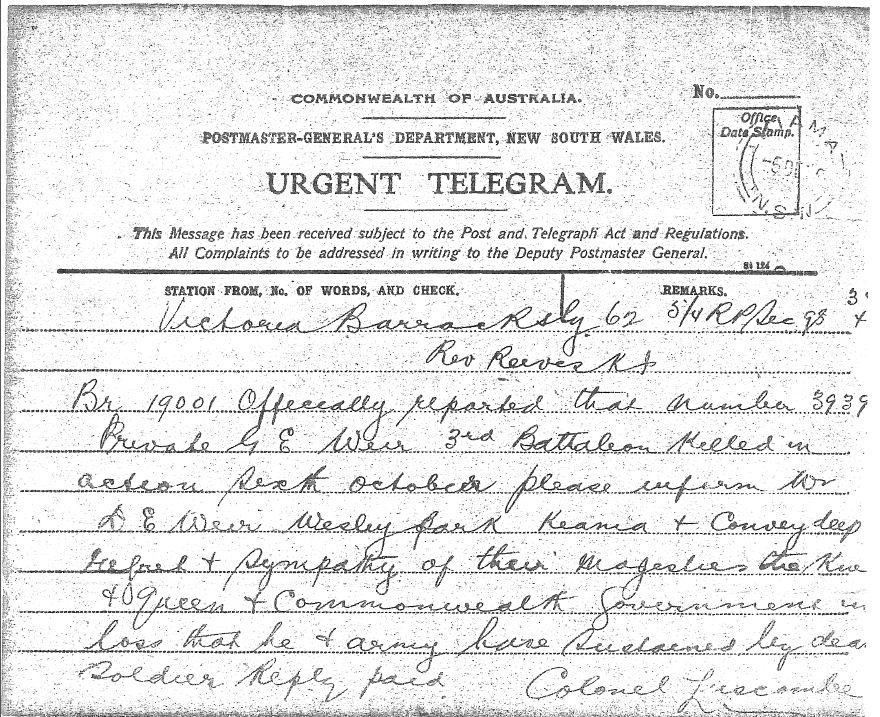 COMMONWEALTH OF AUSTRALIA.
No.
POSTMASTER-GENERAL'S DEPARTMENT, NEW SOUTH WALES.
Office
Date Stamp.
URGENT TELEGRAM.
This Message has been received subject to the Post and Telegraph Act and Regulations.
All Complaints to be addressed in writing to the Deputy Postmaster General.
STATION FROM, No. OF WORDS, AND CHECK.
REMARKS.
Victoria Barracks 62
Rev Reeves
Br 19001 Officially reported that number 3939
Private G E Weir 3rd Battalion Killed in
action sixth october please inform Mr
D E Weir Wesley park Keama + Convey deep
regret + sympathy of their Magesties the
Queen + Commonwealth Government in
loss that he + army have sustained by
soldier Reply paid
Colonel Luscombe